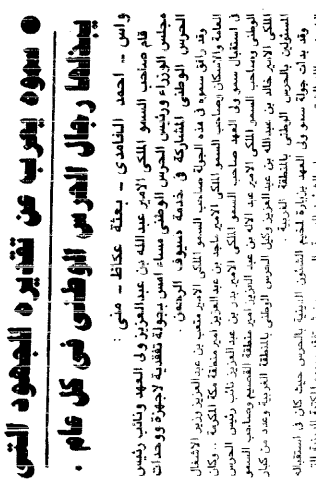 ● سموه يعرب عن تقديره للجهود التي
يبذلها رجال الحرس الوطني في كل عام .
واس - احمد الغامدي - بعثة عكاظ - منى :
قام صاحب السمو الملكي الامير عبد الله بن عبد العزيز ولي العهد ونائب رئيس
مجلس الوزراء ورئيس الحرس الوطني مساء امس بجولة تفقدية لاجهزة ووحدات
الحرس الوطني المشاركة في خدمة ضيوف الرحمن .
وقد رافق سموه في هذه الجولة صاحب السمو الملكي الامير متعب بن عبد العزيز وزير الاشغال
العامة والاسكان وصاحب السمو الملكي الامير ماجد بن عبد العزيز امير منطقة مكة المكرمة . وكان
في استقبال سمو ولي العهد صاحب السمو الملكي الامير بدر بن عبد العزيز نائب رئيس الحرس
الوطني وصاحب السمو الملكي الامير عبد الاله بن عبد العزيز امير منطقة القصيم وصاحب السمو
الملكي الامير خالد بن عبد الله بن عبد العزيز وكيل الحرس الوطني بالمنطقة الغربية وعدد من كبار
المسئولين بالحرس الوطني بالمنطقة الغربية .
وقد بدأت جولة سمو ولي العهد بزيارة لمخيم الشئون الدينية بالحرس حيث كان في استقباله